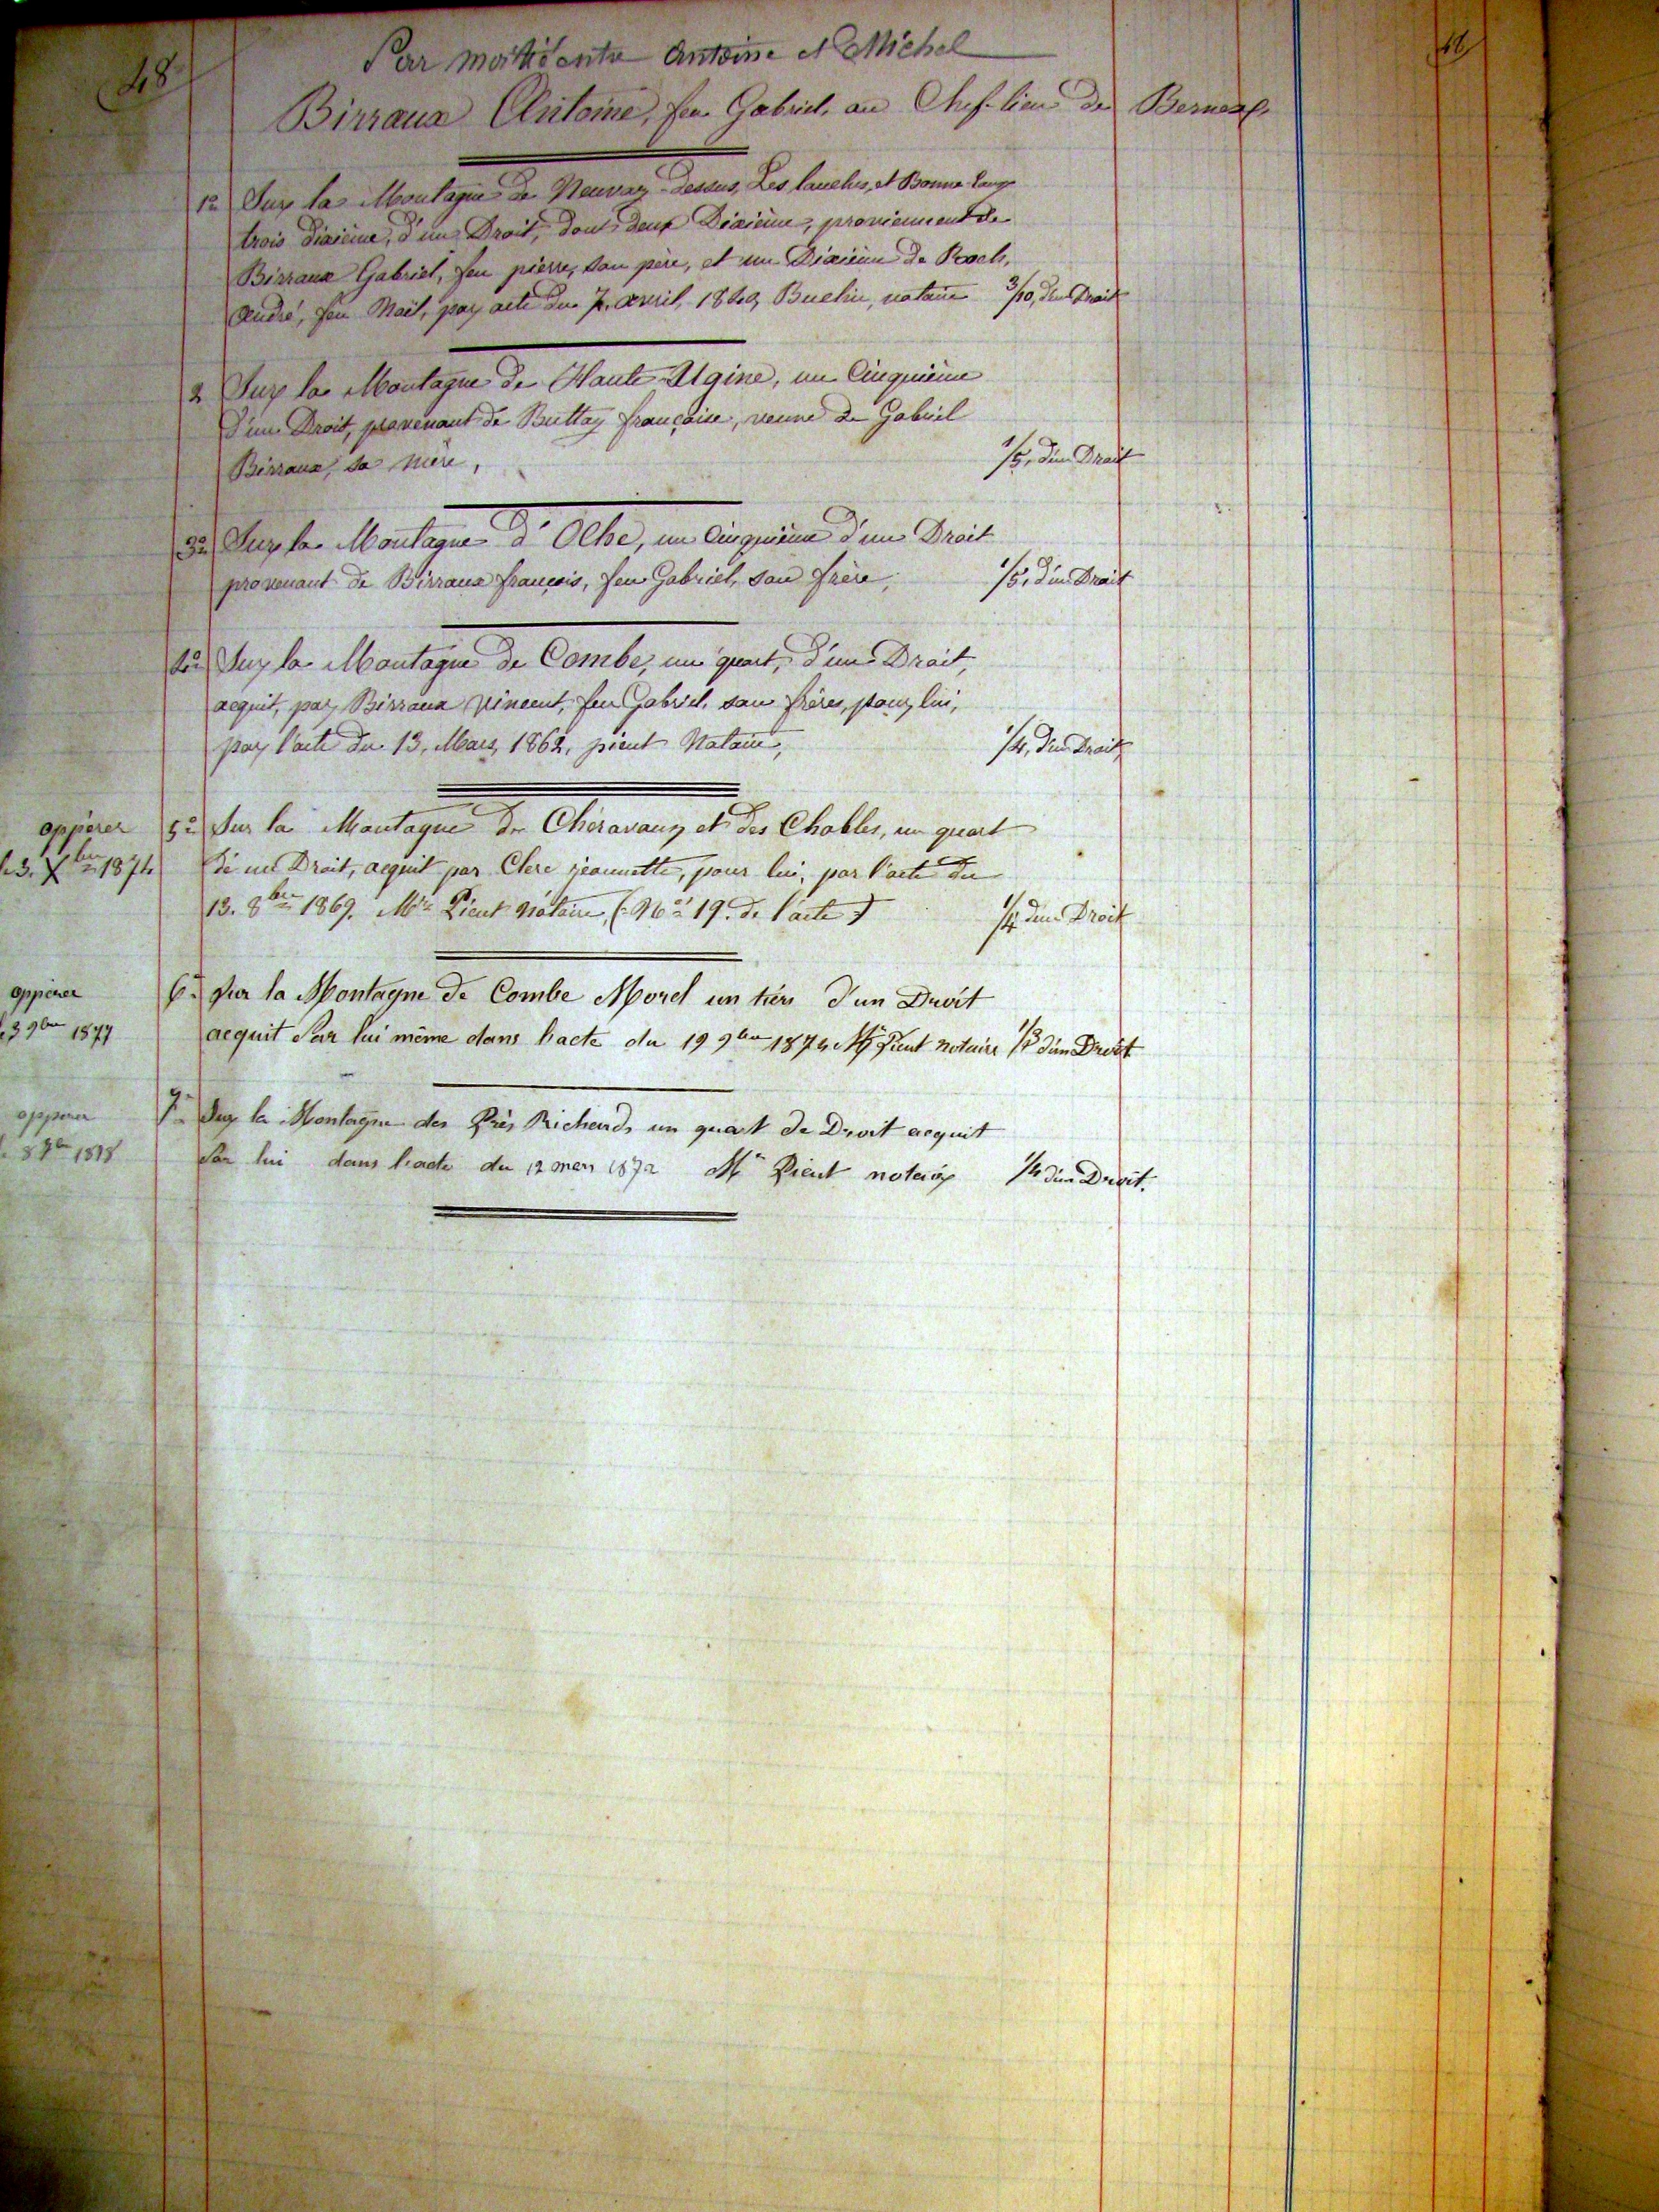 48
Par moitié entre Antoine et Michel
Birraux Antoine, feu Gabriel, au Chef-lieu de Bernex,
1º Sur la Montagne de Neuvaz-dessus, Les lanches, et Bonne
trois dixième, d'un Droit, dont deux Dixième, proviennent de
Birraux Gabriel, feu pierre, son père, et un Dixième de Roch,
André, feu Noël, par acte du 7. avril, Buclin, notaire 3/10, d'un Droit
2 Sur la Montagne de Haute-Ugine, un Cinquième
d'un Droit, provenant de Buttay françoise, veuve de Gabriel
Birraux, sa mère, 1/5, d'un Droit
3º Sur la Montagne d'Oche, un Cinquième d'un Droit
provenant de Birraux françois, feu Gabriel, son frère, 1/5, d'un Droit
4º Sur la Montagne de Combe, un quart, d'un Droit,
acquit, par Birraux vincent, feu Gabriel, son frères, pour lui,
par l'acte du 13, Mars, 1862, pieut Notaire, 1/4, d'un Droit
oppérer 5º Sur la Montagne de Chéravaux et des Chables, un quart
le 3. Xbre 1874 de un Droit, acquit par Clerc jeannette, pour lui, par l'acte du
13. 8bre 1869. Me Pieut Notaire, (Nº 19. de l'acte) 1/4 d'un Droit
oppérer 6º Sur la Montagne de Combe Morel un tiers d'un Droit
le 3 9bre 1877 acquit Par lui même dans l'acte du 19 9bre 1874 Me Pieut notaire 1/3 d'un Droit
opperer 7º Sur la Montagne des Près Richards un quart de Droit acquit
1878 Par lui dans l'acte du 12 mars 1872 Me Pieut notaire 1/4 d'un Droit.